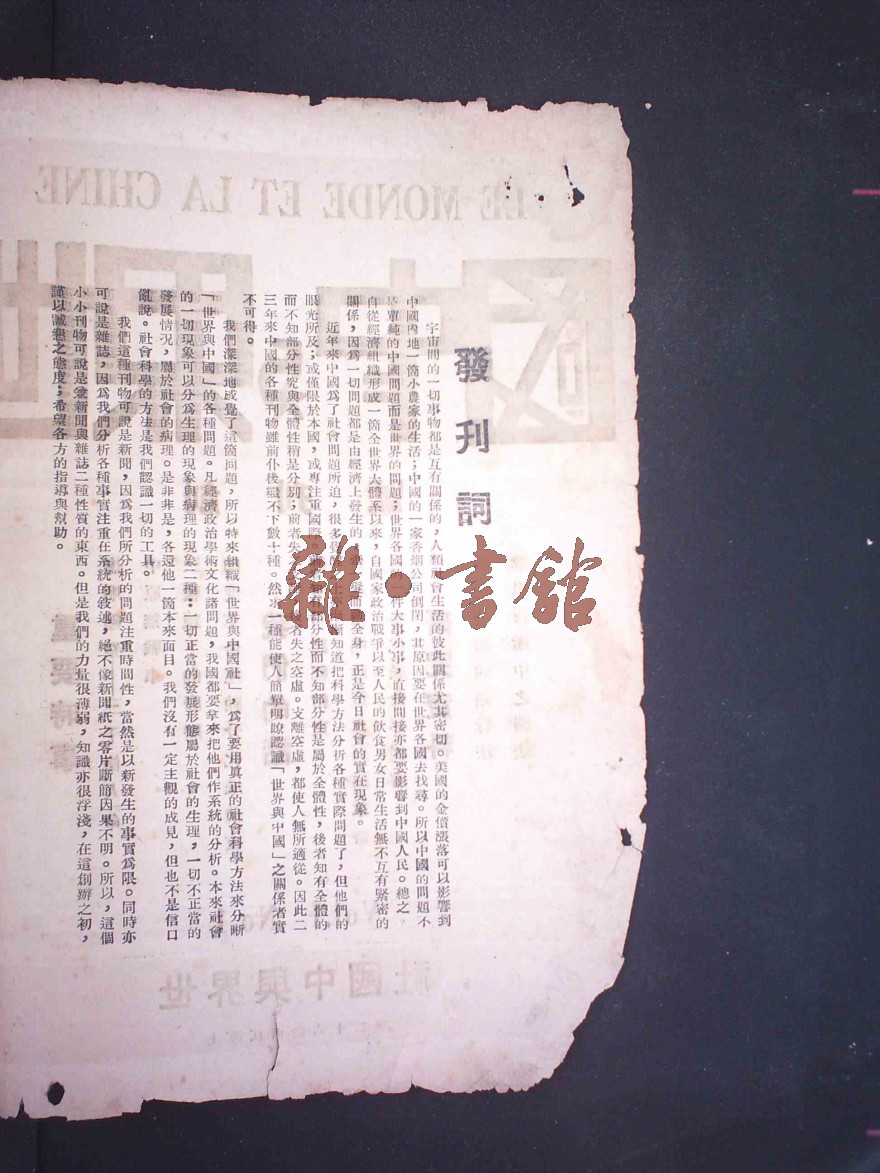 發刊詞
宇宙間的一切事物都是互有關係的,人類社會生活的彼此關係尤其密切。美國的金價漲落可以影響到
中國內地一箇小農家的生活;中國的一家香烟公司倒閉,其原因要在世界各國去找尋。所以中國的問題不
是單純的中國問題而是世界的問題;世界各國的一件大事小事,直接間接亦都要影響到中國人民。總之,
自從經濟組織形成一箇全世界大體系以來,自國家政治戰爭以至人民的飲食男女日常生活無不互有緊密的
關係,因爲一切問題都是由經濟上發生的,而全身,正是今日社會的實在現象。
近年來中國爲了社會問題所迫,很多知道把科學方法分析各種實際問題了,但他們的
眼光所及;或僅限於本國,或專注重國際。部分性而不知部分性是屬於全體性,後者知有全體的
而不知部分性究與全體性稍是分別;前者失後者失之空虛。支離空虛,都使人無所適從。因此二
三年來中國的各種刊物雖前仆後繼不下數十種。然求一種能使人簡單明瞭認識「世界與中國」之關係者實
不可得。
我們深深地感覺了這箇問題,所以特來組織「世界與中國社」,爲了要用真正的社會科學方法來分晰
「世界與中國」的各種問題。凡經濟政治學術文化諸問題,我國都要拿來把他們作系統的分析。本來社會
的一切現象可以分爲生理的現象與病理的現象二種:一切正當的發展形態屬於社會的生理,一切不正當的
發展情況,屬於社會的病理。是非非是,各還他一箇本來面目。我們沒有一定主觀的成見,但也不是信口
亂說。社會科學的方法是我們認識一切的工具。
我們這種刊物可說是新聞,因爲我們所分析的問題注重時間性,當然是以新發生的事實爲限。同時亦
可說是雜誌,因爲我們分析各種事實注重在系統的敘述,絕不像新聞紙之零片斷簡因果不明。所以,這個
小小刊物可說是兼新聞與雜誌二種性質的東西。但是我們的力量很薄弱,知識亦很浮淺,在這創辦之初,
謹以誠懇之態度;希望各方的指導與幫助。
雜·書館
LE MONDE ET LA CHINE
世界與中國社